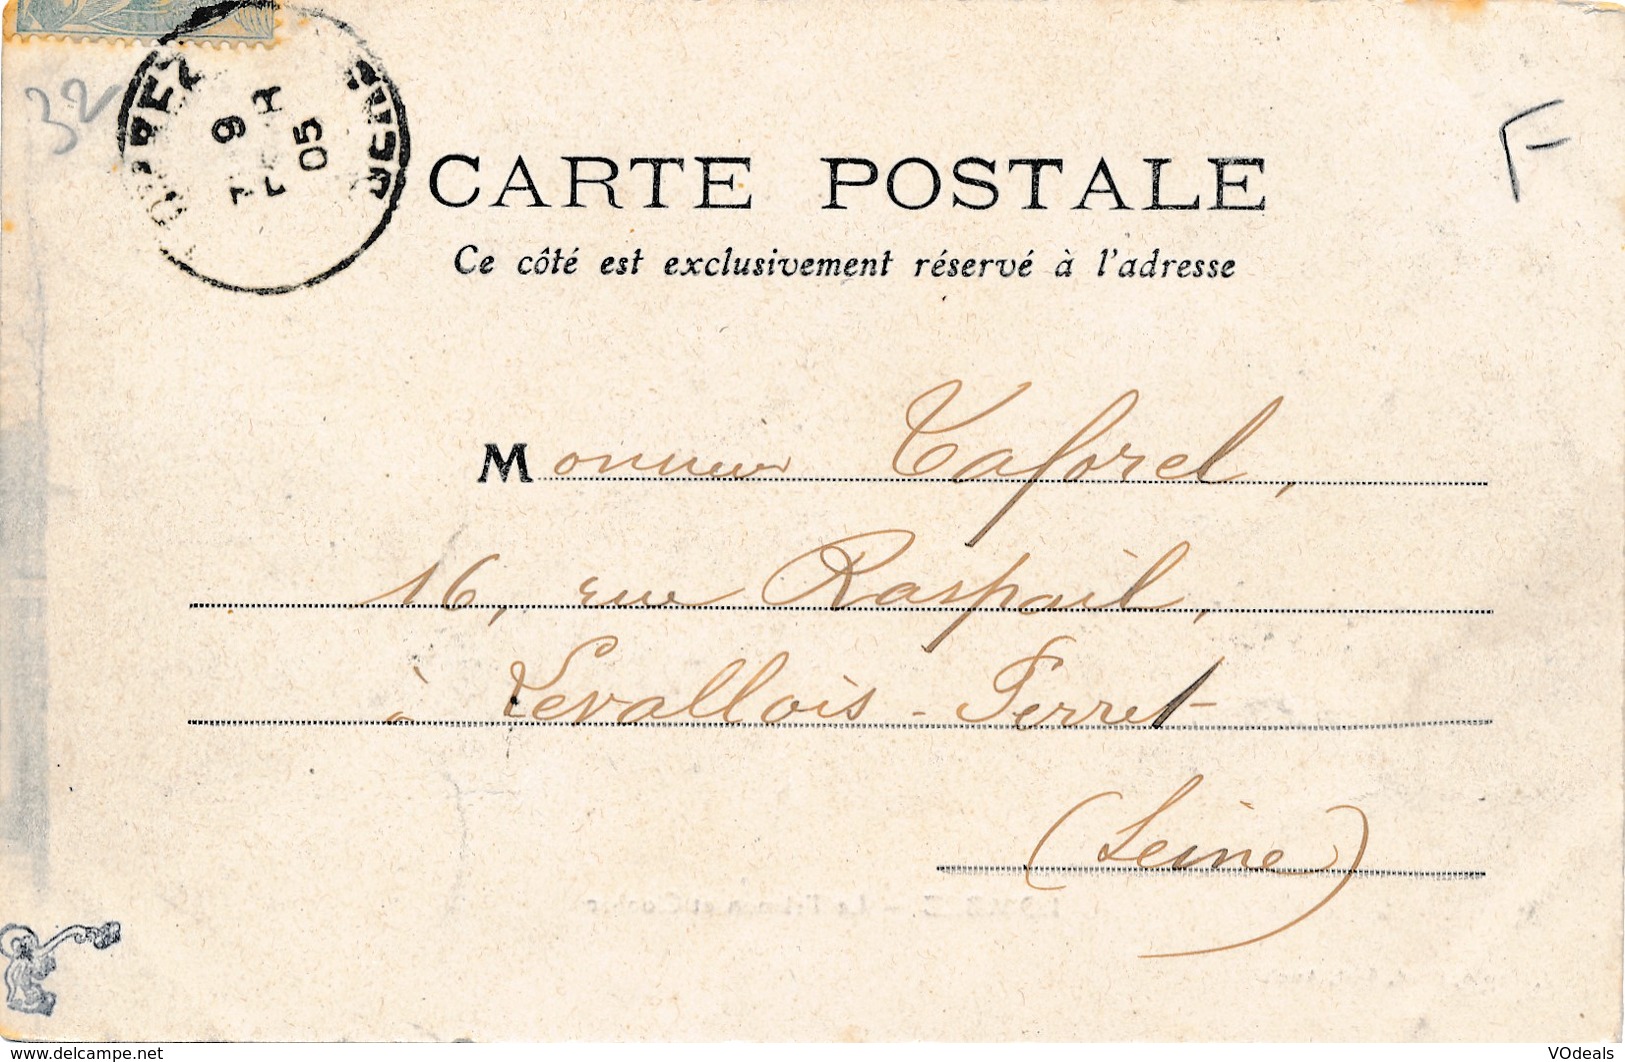 32
9
05
F
CARTE POSTALE
Ce côté est exclusivement réservé à l'adresse
Monsieur Taforel,
16, rue Raspail,
à Levallois-Perret
(Seine)
www.delcampe.net
VOdeals